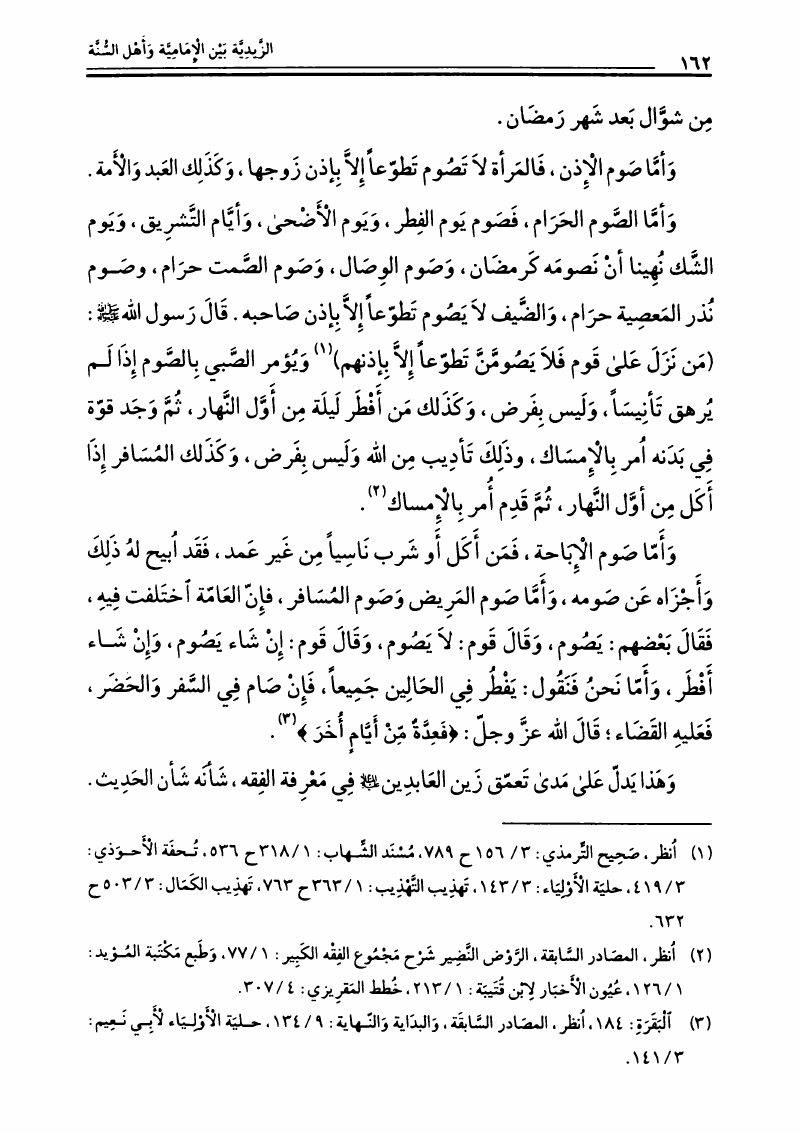 الزَّيدِيَّة بَيْن الْإِمَامِيَّة وَأَهْل السُّنَّة
١٦٢
مِن شوَّال بَعد شَهر رَمضَان .
وَأمَّا صَوم الْإِذن ، فَالمَرأة لاَ تَصُوم تَطوّعاً إلاَّ بِإذن زَوجها ، وَكَذَلِك العَبد وَالْأَمة .
وَأمَّا الصَّوم الحَرَام ، فَصَوم يَوم الفِطر ، وَيَوم الْأَضْحىٰ ، وَأيَّام التَّشرِيق ، وَيَوم
الشَّك نُهِينا أنْ نَصومَه كَرمضَان ، وَصَوم الوِصَال ، وَصَوم الصَّمت حرَام ، وصَـوم
نُذر المَعصِية حرَام ، وَالضَّيف لاَ يَصُوم تَطوّعاً إلاَّ بِإذن صَاحبه . قَالَ رَسول الله ﷺ :
(مَن نَزَلَ عَلىٰ قَوم فَلاَ يَصُومَّنَّ تَطوّعاً إلاَّ بِإذنهم)(١) وَيُؤمر الصَّبي بِالصَّوم إذَا لَـم
يُرهق تَأنِيسَاً ، وَلَيس بِفَرض ، وَكَذَلك مَن أَفْطَر لَيلَة مِن أوَّل النَّهار ، ثُمَّ وَجَد قوّة
فِي بَدَنه أُمر بِالْإِمسَاك ، وذَلِكَ تَأدِيب مِن الله وَلَيس بِفَرض ، وَكَذَلك المُسَافر إذَا
أَكَل مِن أوَّل النَّهار ، ثُمَّ قَدِم أُمر بِالْإِمساك(٢) .
وَأَمّا صَوم الْإِبَاحة ، فَمَن أَكَل أَو شَرب نَاسِياً مِن غَير عَمد ، فَقَد اُبيح لهُ ذَلِكَ
وَأَجْزَاه عَن صَومه ، وَأمَّا صَوم المَرِيض وَصَوم المُسَافر ، فإنّ العَامّة ٱختَلفت فِيهِ ،
فَقَالَ بَعْضهم : يَصُوم ، وَقَالَ قَوم : لاَ يَصُوم ، وَقَالَ قَوم : إنْ شَاء يَصُوم ، وَإنْ شَـاء
أَفْطَر ، وَأَمّا نَحنُ فَنَقُول : يَفْطُر فِي الحَالِين جَمِيعاً ، فَإنْ صَام فِي السَّفر وَالحَضَر ،
فَعَليهِ القَضَاء ؛ قَالَ الله عزَّ وجلّ : ﴿فَعِدَّةٌ مِّنْ أَيَّامٍ أُخَرَ ﴾(٣) .
وَهَذا يَدلّ عَلىٰ مَدىٰ تَعمّق زَين العَابدِين ﷵ فِي مَعْرِفة الفِقه ، شَأنَه شَأن الحَدِيث .
(١) اُنظر ، صَحِيح التِّرمذي : ٣/ ١٥٦ ح ٧٨٩، مُسْنَد الشِّهاب : ١/ ٣١٨ ح ٥٣٦، تُـحفَة الْأَحـوَذي :
٣/ ٤١٩، حليَة الْأَوْليَاء : ٣/ ١٤٣، تَهذِيب التَّهْذِيب : ١/ ٣٦٣ ح ٧٦٣، تَهذِيب الكَمَال : ٣/ ٥٠٣ ح
٦٣٢.
(٢) اُنظر ، المصَادر السَّابقة ، الرَّوْض النَّضِير شَرْح مَجْمُوع الفِقْه الكَبِير : ١/ ٧٧، وَطَبع مَكْتَبة المُـؤيد :
١/ ١٢٦، عُيُون الْأَخبَار لِابْن قُتَيبَة : ١/ ٢١٣، خُطط المَقرِيزي : ٤/ ٣٠٧.
(٣) اَلْبَقَرَةِ : ١٨٤، اُنظر ، المصَادر السَّابقَة ، وَالبدَاية وَالنّهاية : ٩/ ١٣٤، حـليَة الْأَوْلـيَاء لأَبـي نَـعِيم :
٣/ ١٤١.